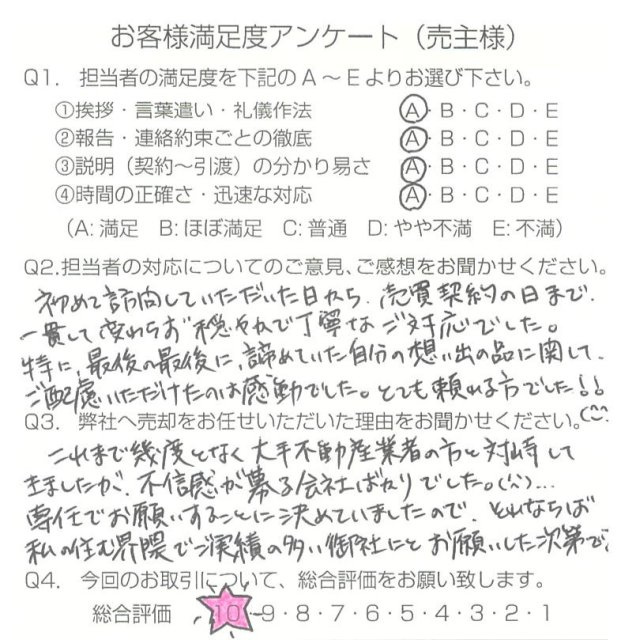 お客様満足度アンケート（売主様）
Q1. 担当者の満足度を下記のA～Eよりお選び下さい。
①挨拶・言葉遣い・礼儀作法 A・B・C・D・E
②報告・連絡約束ごとの徹底 A・B・C・D・E
③説明（契約～引渡）の分かり易さ A・B・C・D・E
④時間の正確さ・迅速な対応 A・B・C・D・E
（A: 満足 B: ほぼ満足 C: 普通 D: やや不満 E: 不満）
Q2.担当者の対応についてのご意見、ご感想をお聞かせください。
初めて訪問していただいた日から、売買契約の日まで、
一貫して変わらず穏やかで丁寧なご対応でした。
特に、最後の最後に、諦めていた自分の想い出の品に関して、
ご配慮いただけたのは感動でした。とても頼れる方でした!!
Q3. 弊社へ売却をお任せいただいた理由をお聞かせください。(^^)
これまで幾度となく大手不動産業者の方と対峙して
きましたが、不信感が募る会社ばかりでした。(^^;)...
専任でお願いすることに決めていましたので、それならば
私の住む界隈でご実績の多い御社にとお願いした次第で
Q4. 今回のお取引について、総合評価をお願い致します。
総合評価 10・9・8・7・6・5・4・3・2・1